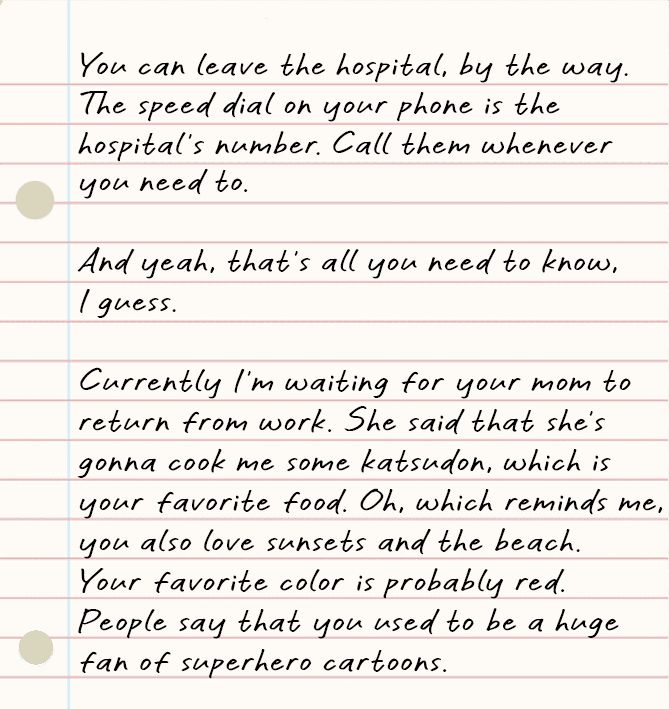 You can leave the hospital, by the way.
The speed dial on your phone is the
hospital's number. Call them whenever
you need to.
And yeah, that's all you need to know,
I guess.
Currently I'm waiting for your mom to
return from work. She said that she's
gonna cook me some katsudon, which is
your favorite food. Oh, which reminds me,
you also love sunsets and the beach.
Your favorite color is probably red.
People say that you used to be a huge
fan of superhero cartoons.